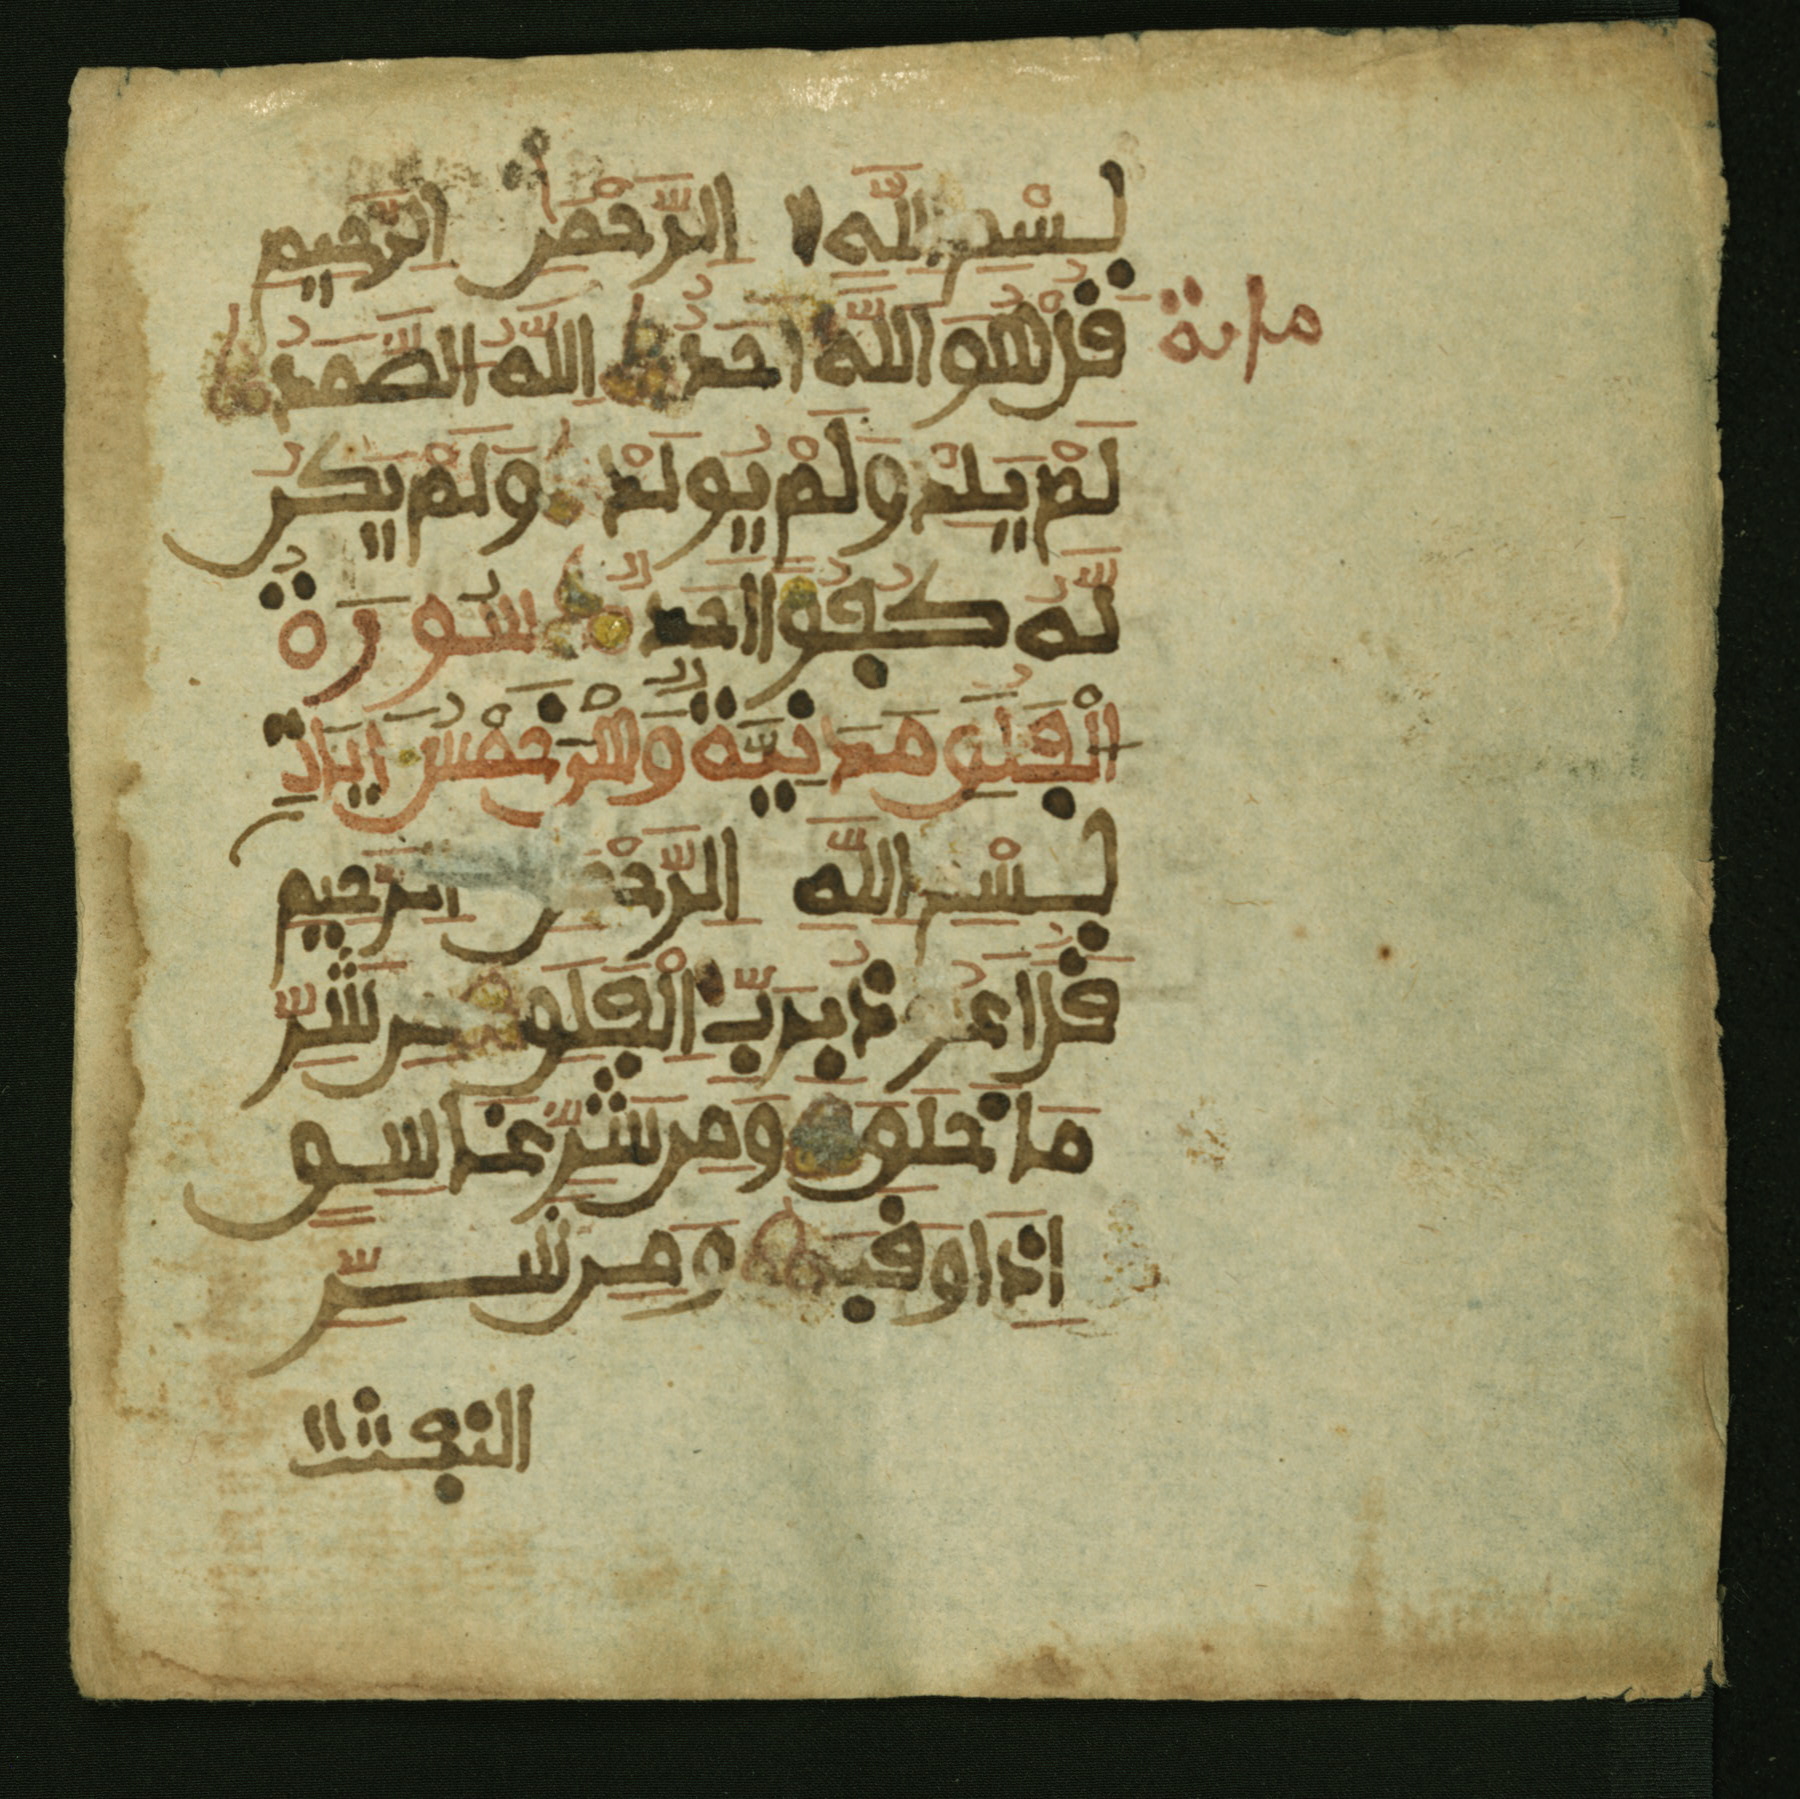 بِسْمِ اللَّهِ الرَّحْمَٰنِ الرَّحِيمِ
مائة
قُلْ هُوَ اللَّهُ أَحَدٌ اللَّهُ الصَّمَدُ
لَمْ يَلِدْ وَلَمْ يُولَدْ وَلَمْ يَكُن
لَّهُ كُفُوًا أَحَدٌ سُورَةُ
الْفَلَقِ مَدَنِيَّةٌ وَهِيَ خَمْسُ آيَاتٍ
بِسْمِ اللَّهِ الرَّحْمَٰنِ الرَّحِيمِ
قُلْ أَعُوذُ بِرَبِّ الْفَلَقِ مِن شَرِّ
مَا خَلَقَ وَمِن شَرِّ غَاسِقٍ
إِذَا وَقَبَ وَمِن شَرِّ
النفثت